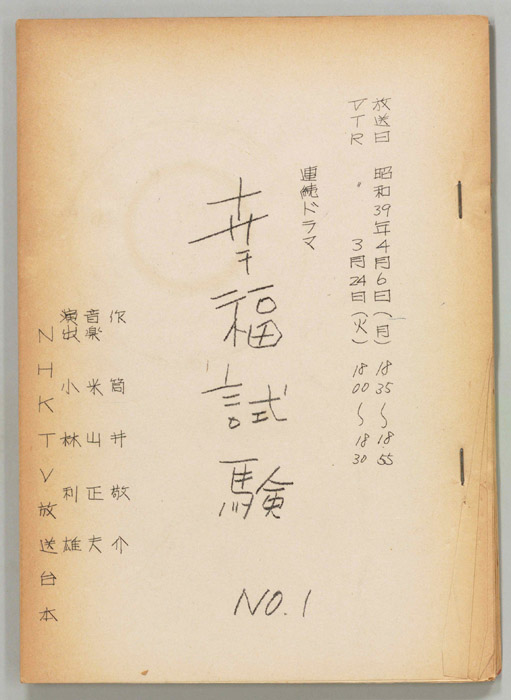 放送日 昭和39年4月6日(月) 18 35〜18 55
VTR 〃 3月24日(火) 18 00〜18 30
連続ドラマ
幸福試験
NO.1
作 筒井敬介
音楽 米山正夫
演出 小林利雄
NHKTV放送台本